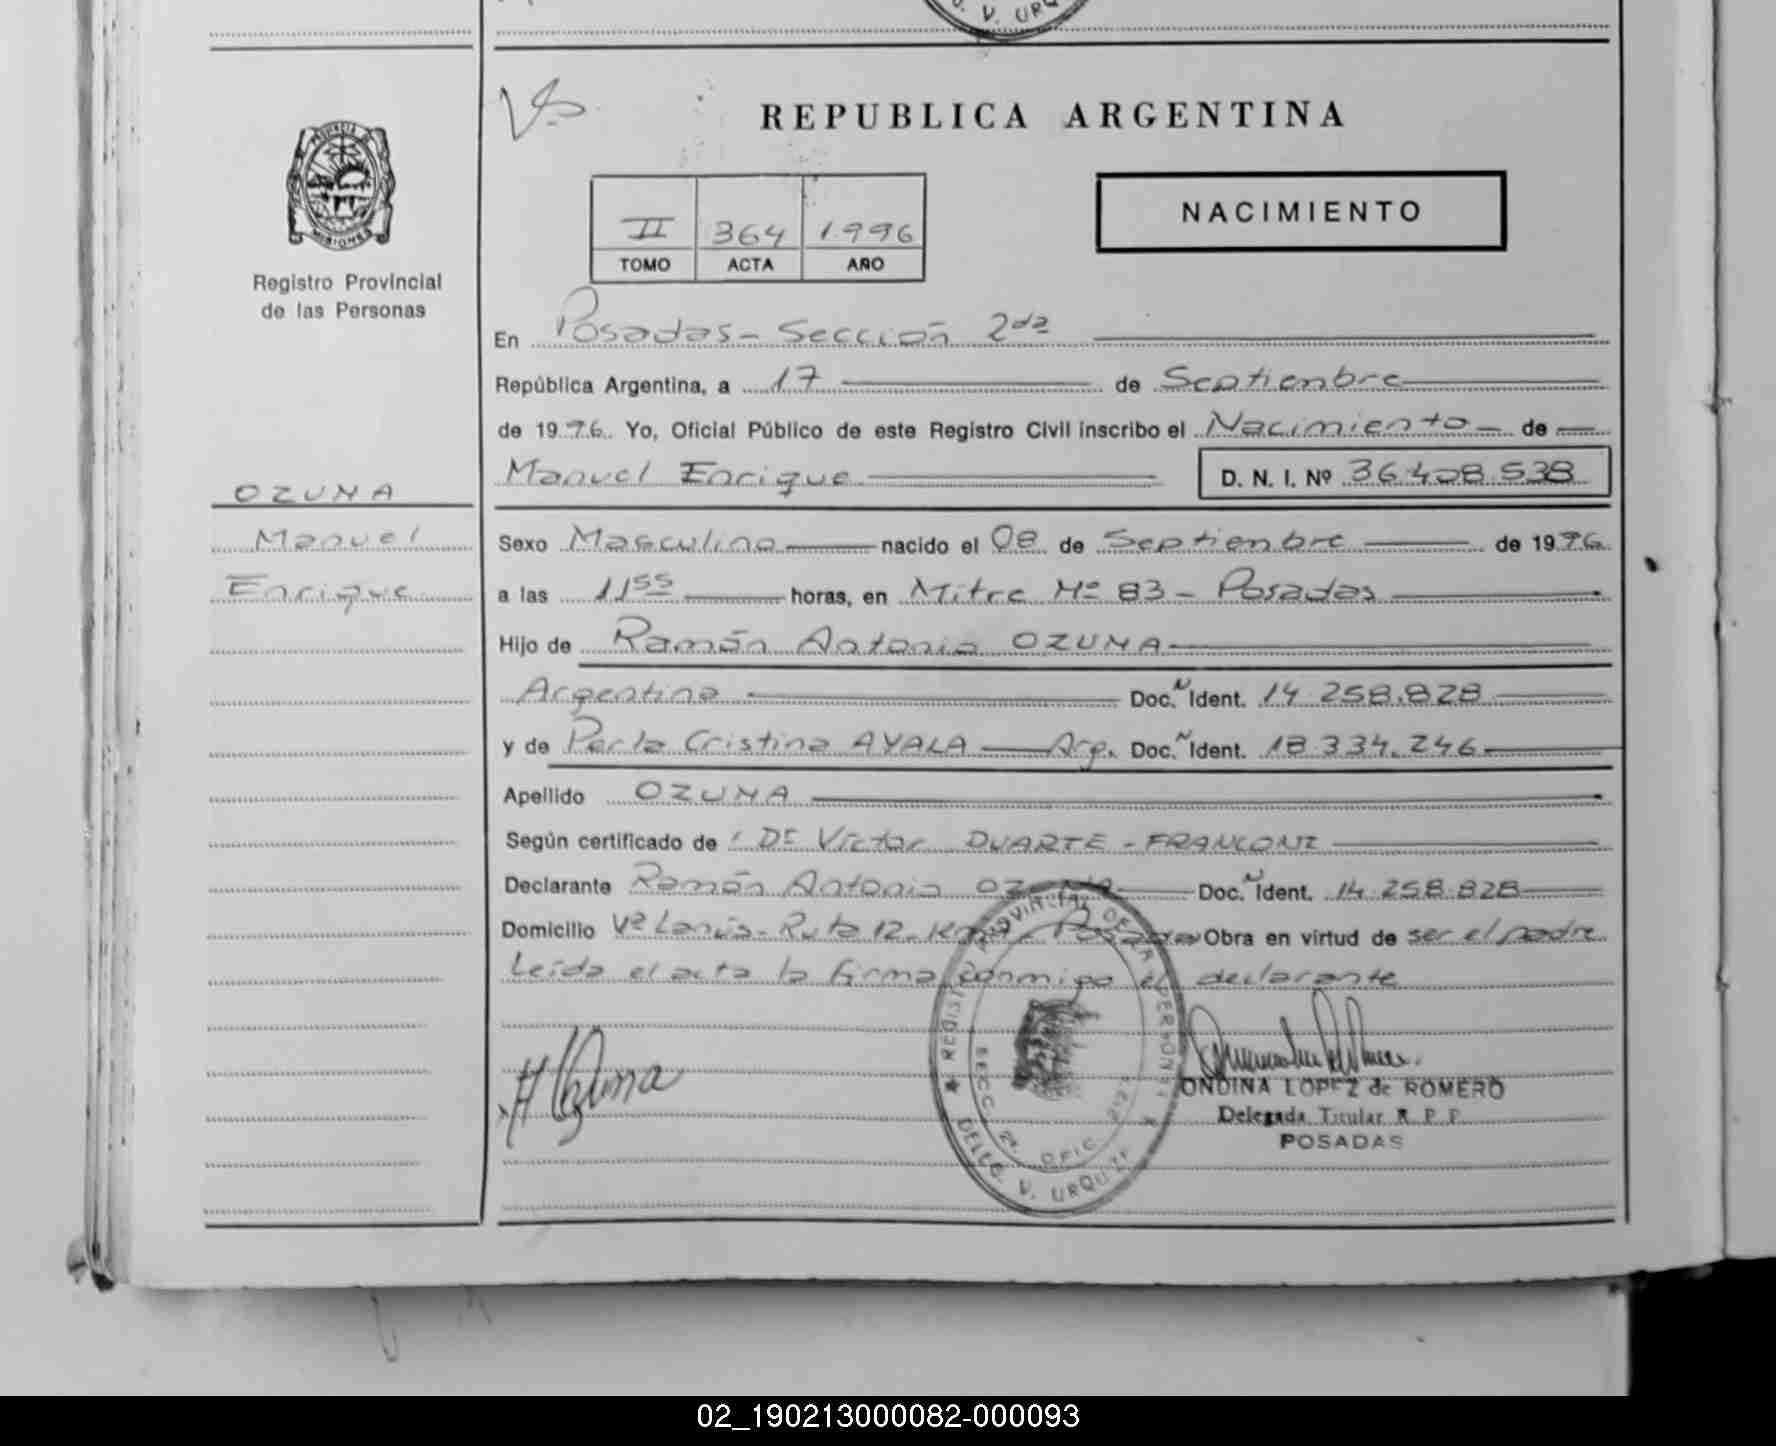 V. URQ
REPUBLICA ARGENTINA
PROVINCIA DE
MISIONES
Registro Provincial
de las Personas
II 364 1.996
TOMO ACTA AÑO
NACIMIENTO
En Posadas - Sección 2da
República Argentina, a 17 de Septiembre
de 1996. Yo, Oficial Público de este Registro Civil inscribo el Nacimiento - de
Manuel Enrique D. N. I. Nº 36.408.538
OZUNA
Manuel
Enrique
Sexo Masculino nacido el 08 de Septiembre de 1996
a las 11 55 horas, en Mitre Nº 83 - Posadas
Hijo de Ramón Antonio OZUNA
Argentino Doc. Ident. 14.258.828
y de Perla Cristina AYALA Arg. Doc. Ident. 18.334.246
Apellido OZUNA
Según certificado de Dr Victor DUARTE - FRANCONI
Declarante Ramón Antonio OZUNA Doc. Ident. 14.258.828
Domicilio Vª Lanús - Ruta 12 - Posadas Obra en virtud de ser el padre
Leída el acta la firma conmigo el declarante
REGIST PROVINCIAL DE LA PERSON
SECC. 2ª. OFIC. 212
DELEG. V. URQUIZA
ONDINA LOPEZ de ROMERO
Delegada Titular R. P. P.
POSADAS
02_190213000082-000093